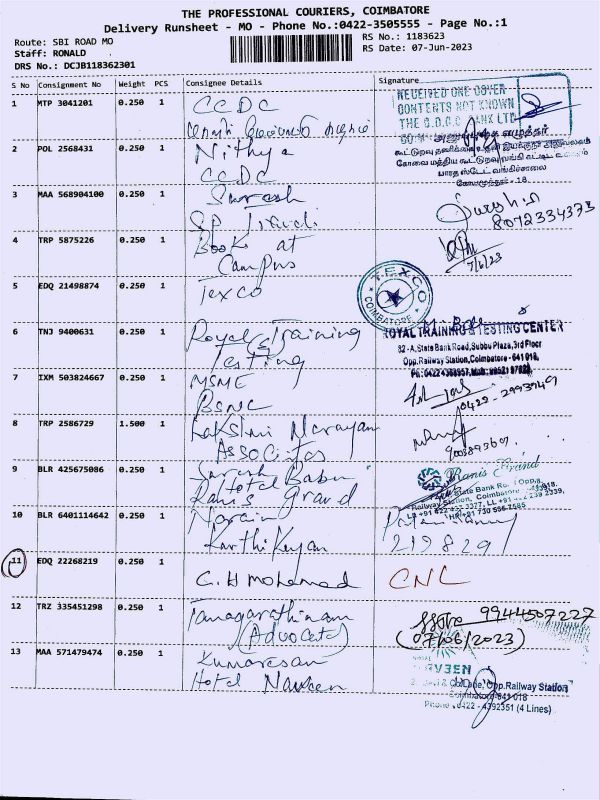 THE PROFESSIONAL COURIERS, COIMBATORE
Delivery Runsheet - MO - Phone No.:0422-3505555 - Page No.:1
Route: SBI ROAD MO
RS No.: 1183623
Staff: RONALD
RS Date: 07-Jun-2023
DRS No.: DCJB118362301
S No Consignment No Weight PCS Consignee Details Signature
1 MTP 3041201 0.250 1 CCDC
RECEIVED ONE COVER
CONTENTS NOT KNOWN
THE C.D.C.C BANK LTD
2 POL 2568431 0.250 1 Nithya
CCDC
கோவை மத்திய கூட்டுறவு வங்கி கட்டிட வளாகம்
பாரத ஸ்டேட் வங்கிசாலை
கோயமுத்தூர் - 18.
3 MAA 568904100 0.250 1 Suresh
SP
Suresh.n
8072334373
4 TRP 5875226 0.250 1 Book at
Campus
7/6/23
5 EDQ 21498874 0.250 1 Texco
TEXCO
COIMBATORE
6 TNJ 9400631 0.250 1 Royal Training
&
Testing
ROYAL TRAINING & TESTING CENTER
32-A, State Bank Road, Subbu Plaza, 3rd Floor
Opp. Railway Station, Coimbatore - 641 018.
7 IXM 503824667 0.250 1 MSME
BSNL
0422-
8 TRP 2586729 1.500 1 Lakshmi Narayan
Associates
9 BLR 425675086 0.250 1 Suresh Babu
Hotel
Ranis Grand
Ranis Grand
State Bank Ro
Railway Station, Coimbatore
10 BLR 6401114642 0.250 1 Narain
Karthikeyan
219829
11 EDQ 22268219 0.250 1 C.H mohamad CNL
12 TRZ 335451298 0.250 1 Tanagarathinam
(Advocate)
9944507227
(07/06/2023)
13 MAA 571479474 0.250 1 Kumaresan
Hotel Naveen
Opp.Railway Station
Coimbatore-641 018
Phone : 0422 - 4392351 (4 Lines)